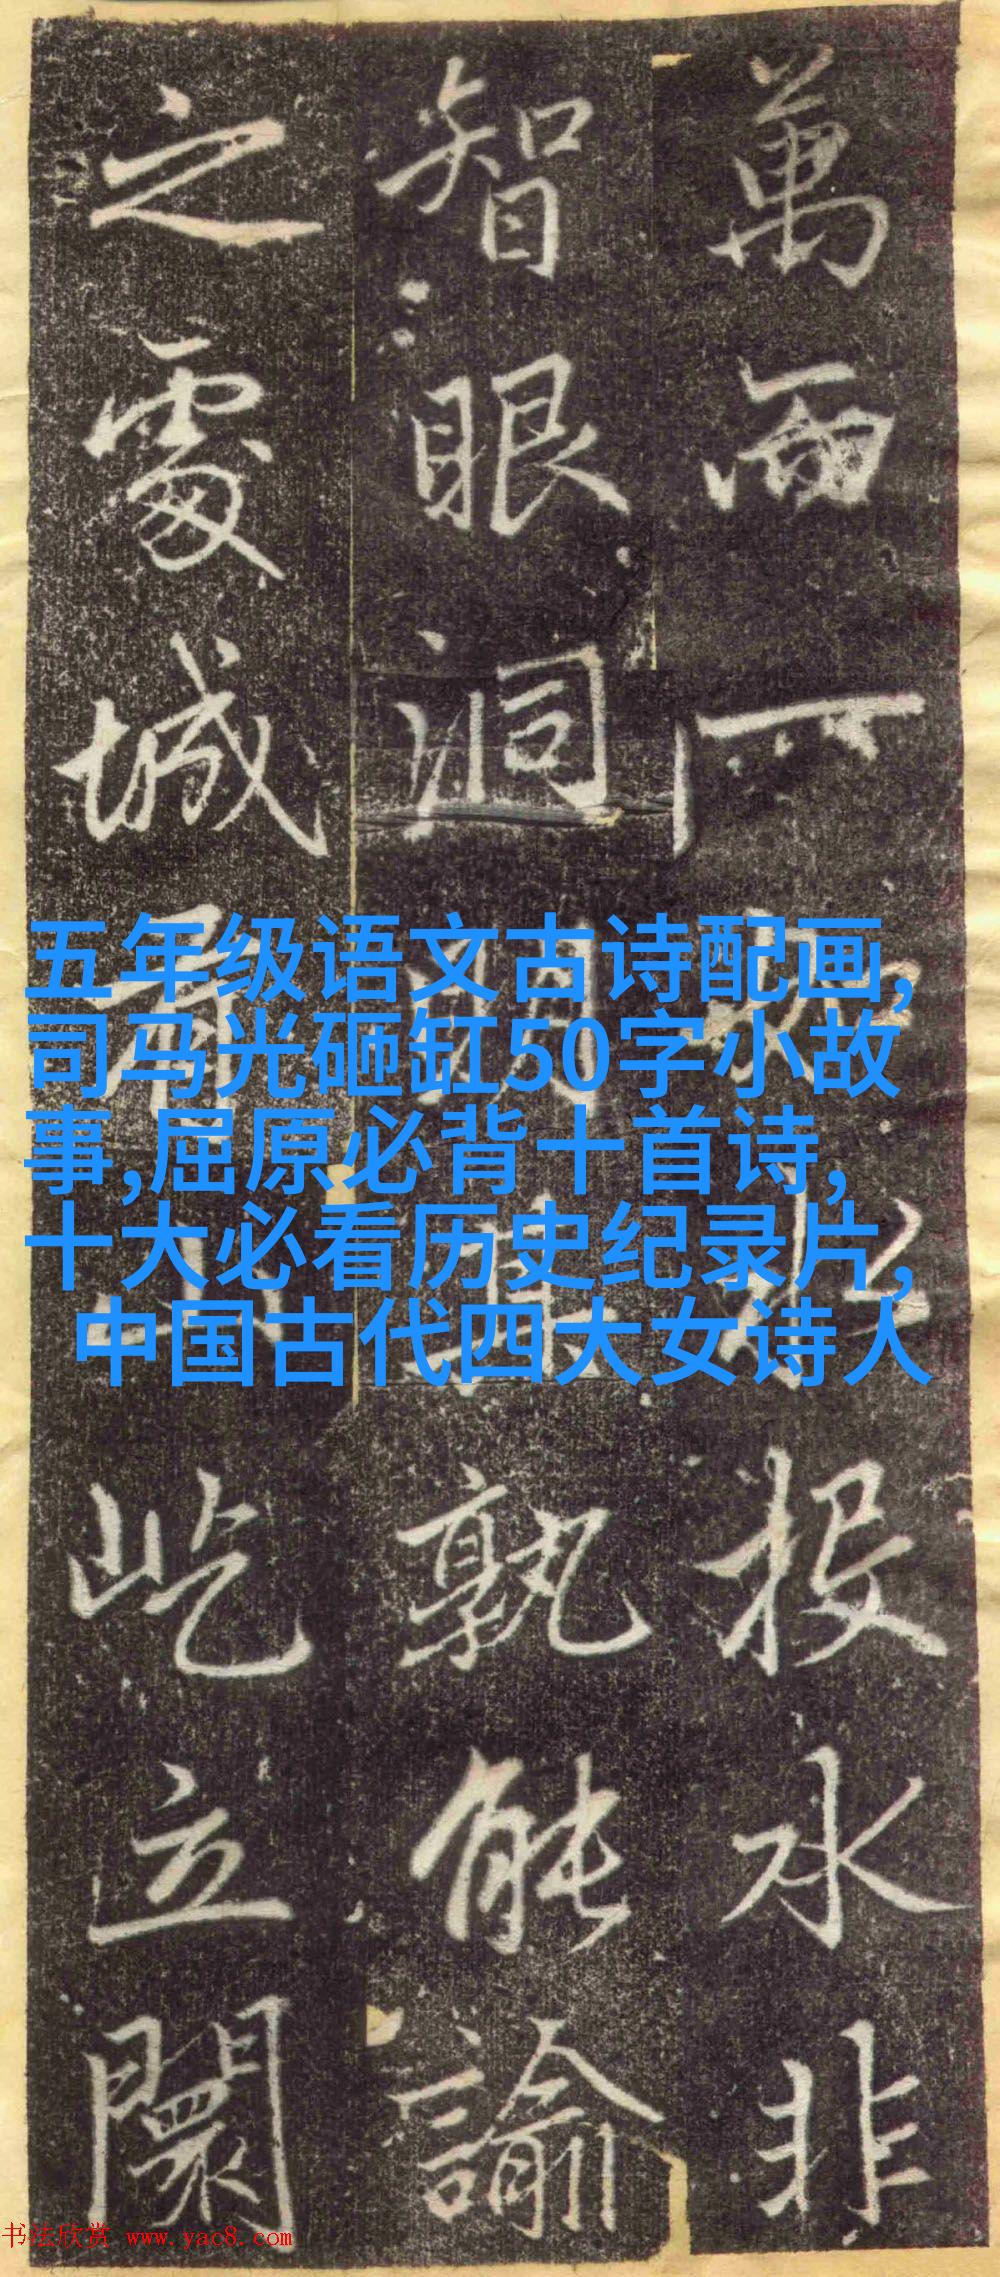 萬而投水非
智眼洞孰能諭
之處城屹立闤
五年级语文古诗配画,
司马光砸缸50字小故
事,屈原必背十首诗,
十大必看历史纪录片,
中国古代四大女诗人
书法欣赏 www.yac8.com